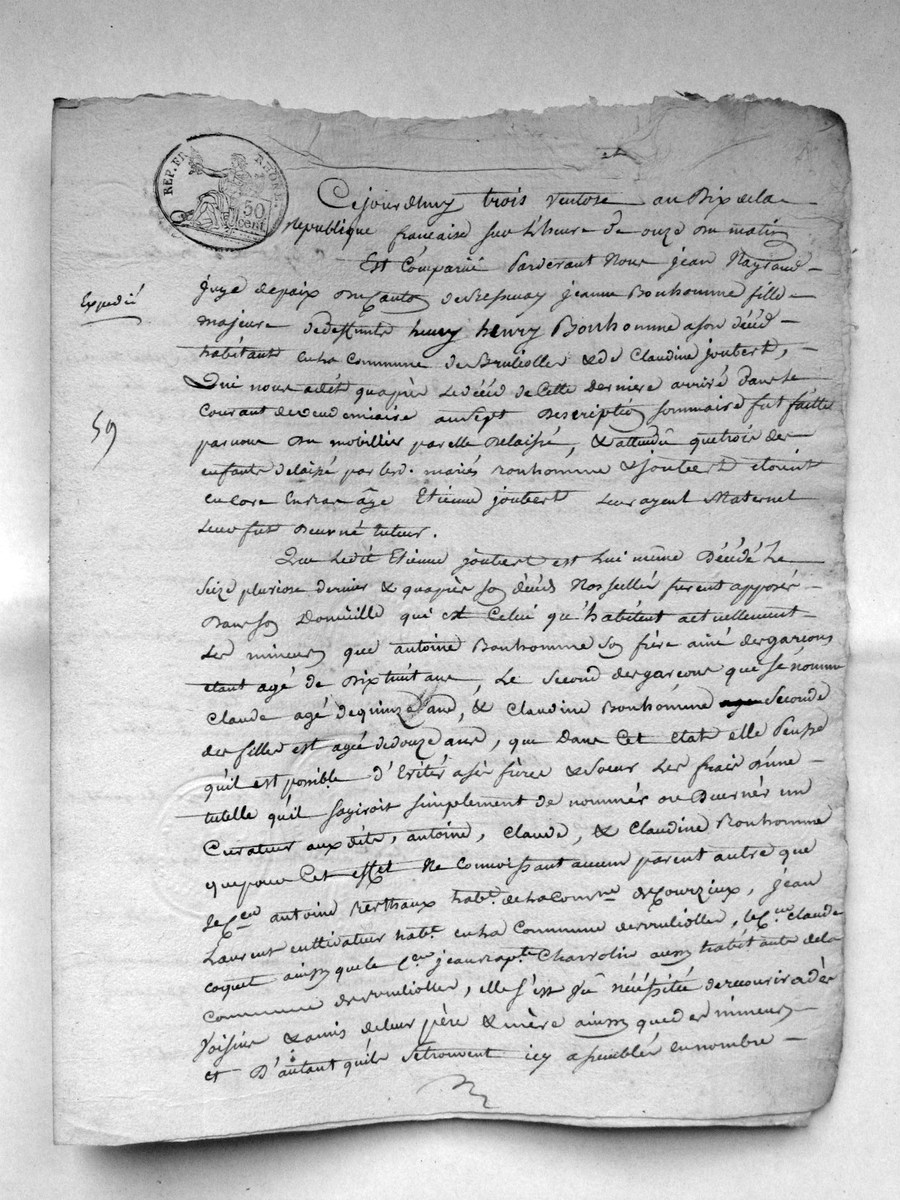 REP. FRA. RHONE.
50
cent.
Cejourdhuy trois ventose an Dix de la
République francaise sur L'heure de onze du matin
Est Comparüe Pardevant Nous jean Raynaud
Expedié
juge depaix du Canton de Bessenay jeanne Bonhomme fille
majeure de deffunts henry henry Bonhomme a son décéd
habitante en la Commune de Brulioller & de Claudine joubert,
59
Qui nous a dit quaprès Le décéd de Cette derniere arrivé dans le
Courant de vendemiaire an sept Description sommaire fut faitte
par nous du mobillier par elle Delaissé, & attendu que trois des
enfants delaissé par lesd. mariés Bonhomme & joubert étoient
encore en bas âge Etienne joubert Leur ayeul Maternel
Leur fut Decerné tuteur.
Que Ledit Etienne joubert est Lui même Décédé Le
Seize pluviose dernier & quaprès son décéd Nos scellés furent apposés
Dans son Domicille qui est Celui qu'habitent actuellement
Les mineurs que antoine Bonhomme son frère ainé des garçons
étant agé de Dixhuit ans, Le Second des garçons que se nomme
Claude agé de quinze ans, & Claudine Bonhomme Seconde
des filles est agée de douze ans, que Dans Cet Etat elle Pense
quil est possible d'Eviter a ses frères & Soeur Les frais D'une
tutelle qu'il sagiroit simplement de nommer ou Decerner un
Curateur aux dits, antoine, Claude, & Claudine Bonhomme
que pour Cet effet Ne Connoissant aucun parent autre que
le Cen antoine Berthaux habt. de La Comne de Courzieux, jean
Laurent cultivateur habt. en La Commune de Brulioller, le Cen Claude
Coquet ainsy que le Cen jean Bapte Charrolin aussy habitants de la
Commune de Brulioller, elle s'est vû nécéssité de recourir a des
Voisins & amis de leur père & mère ainsy que des mineurs
et D'autant qu'ils se trouvent icy assemblés en nombre